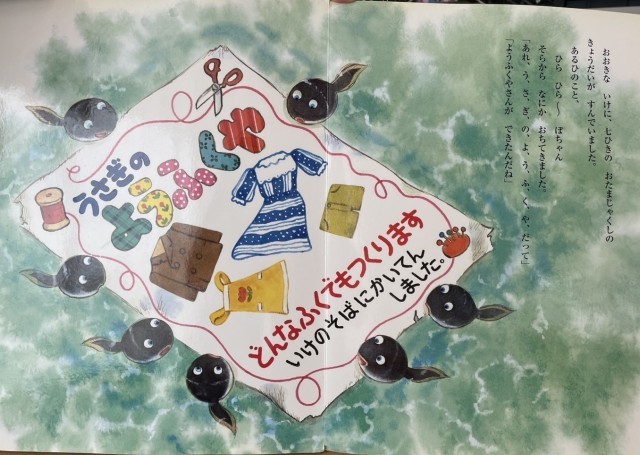 おおきな いけに、七ひきの おたまじゃくしの
きょうだいが すんでいました。
あるひのこと、
ひら ひら〜〜 ぽちゃん
そらから なにか おちてきました。
「あれ、う、さ、ぎ、の、よ、う、ふ、く、や、だって」
「ようふくやさんが できたんだね」
うさぎの
ようふくや
どんなふくでもつくります
いけのそばにかいてん
しました。